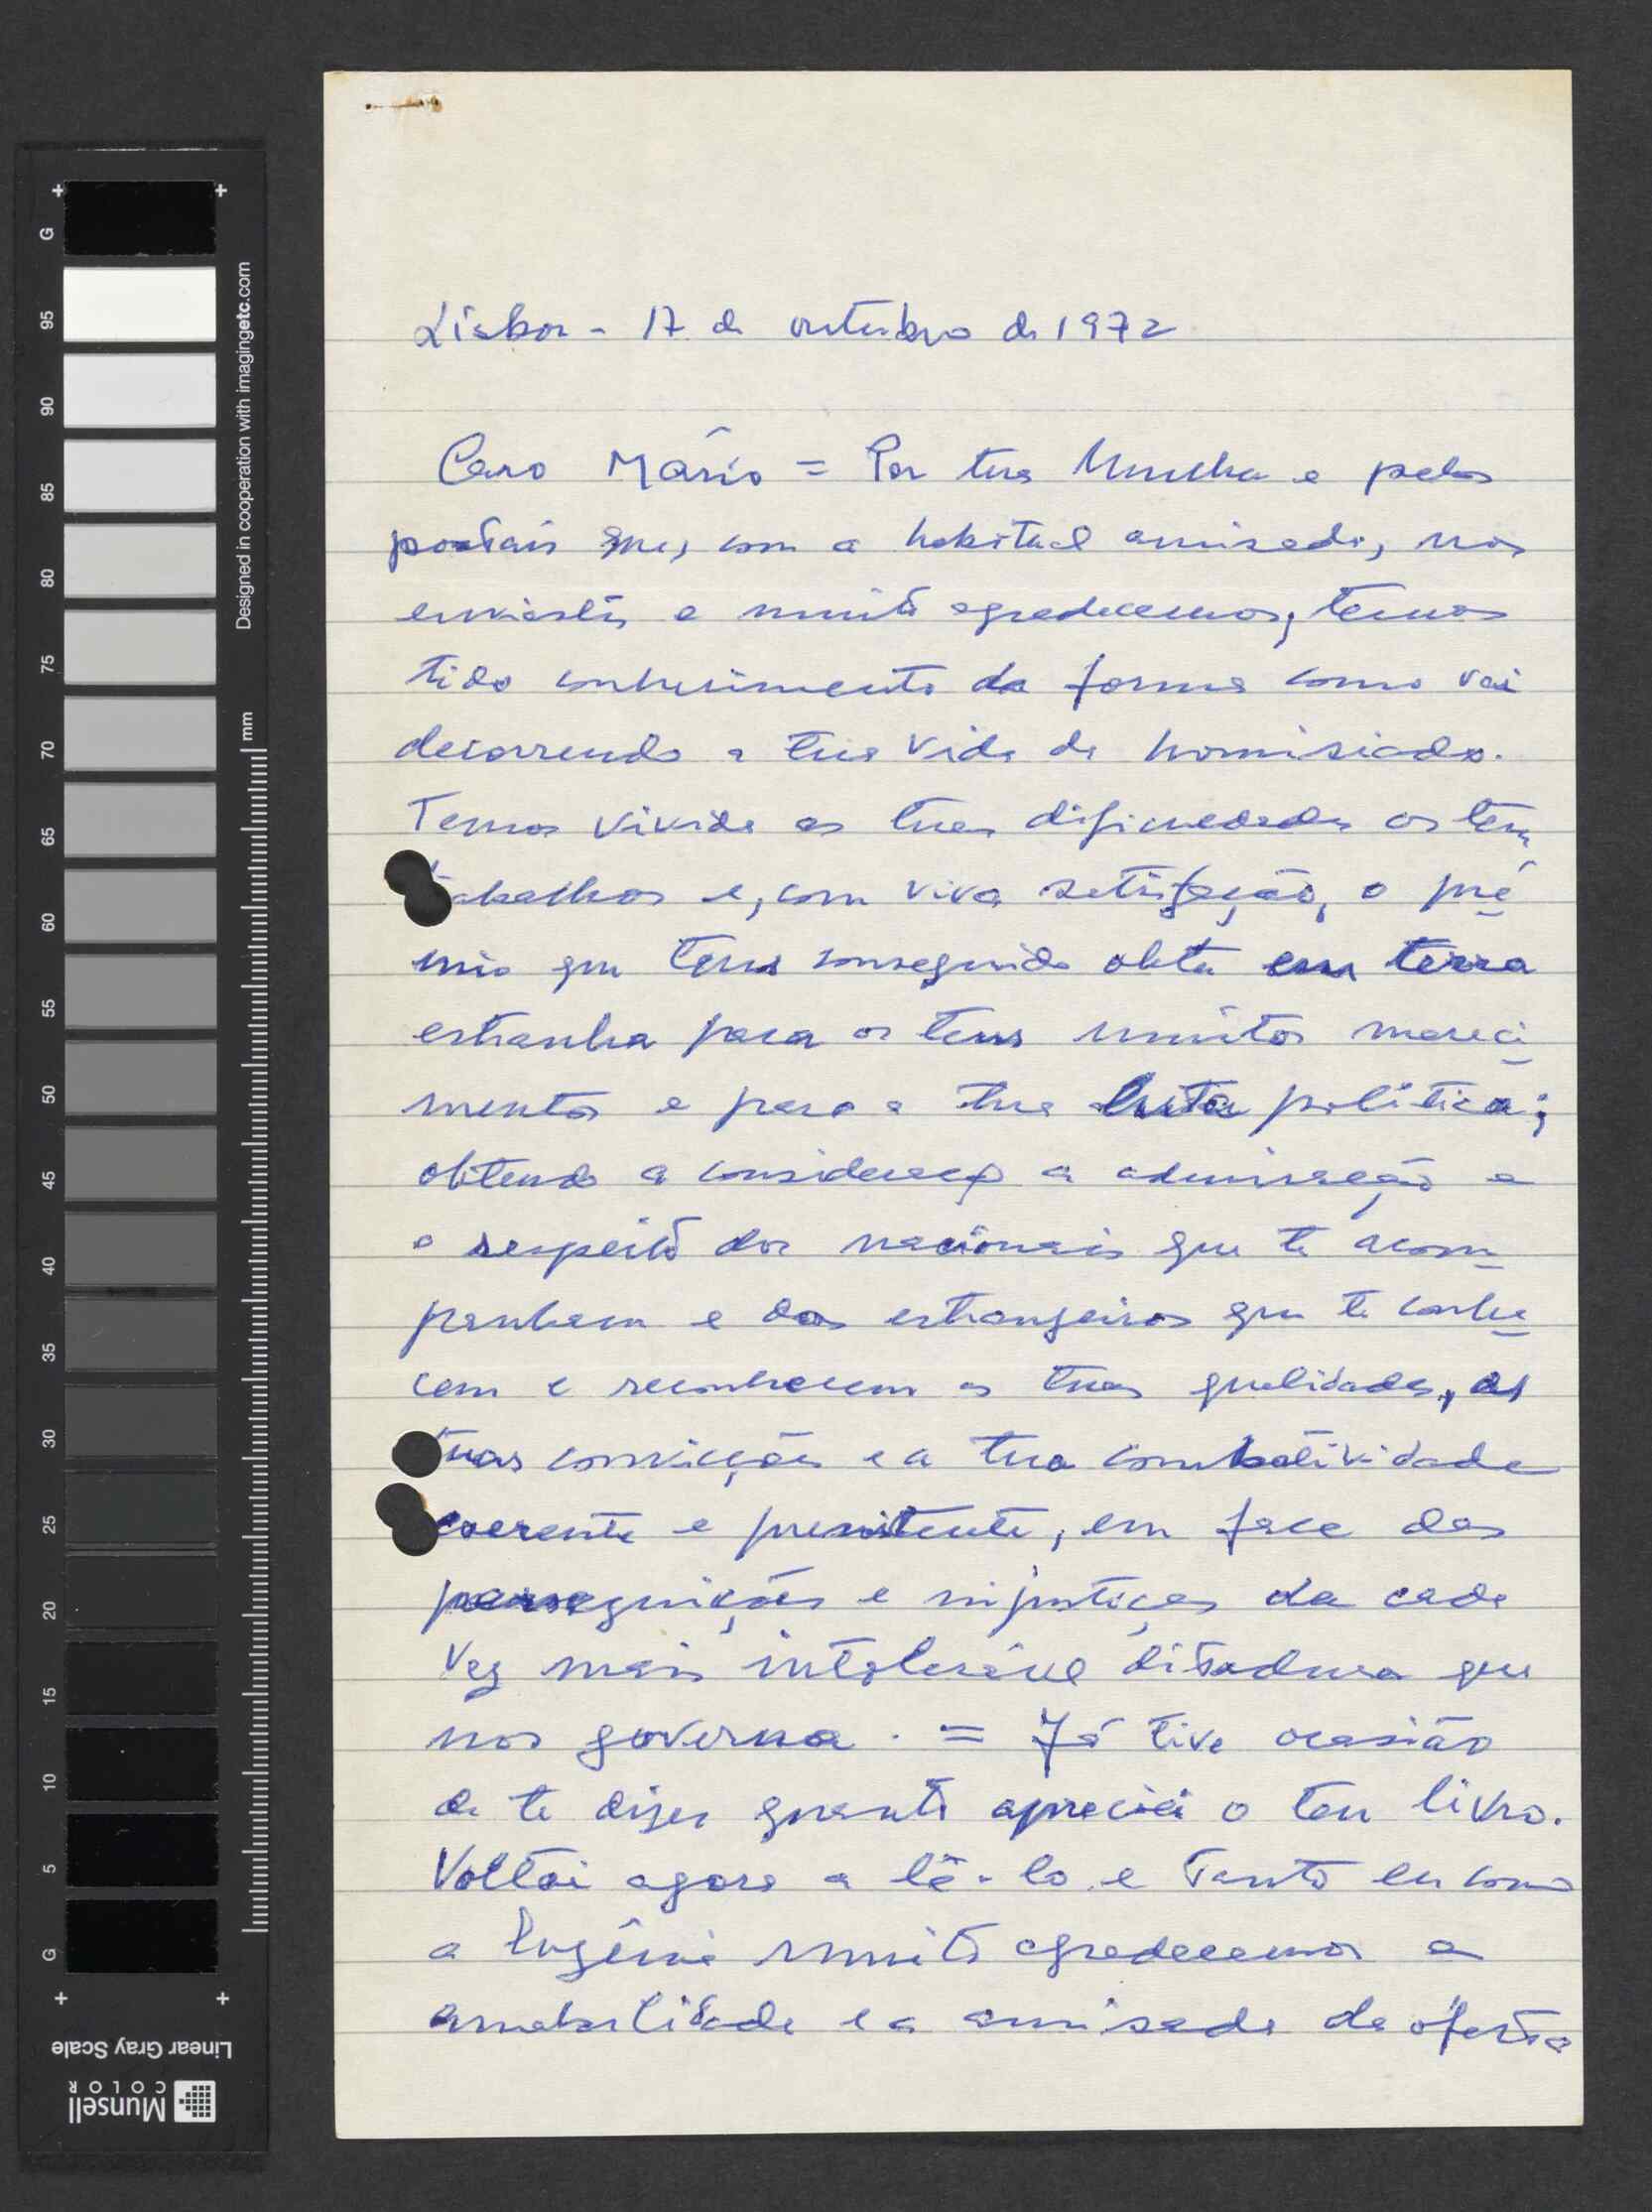 Lisboa - 17 de outubro de 1972
Caro Mário = Por tua e pelos
postais que, com a habitual amizade, nos
enviaste e muito agradecemos, temos
tido conhecimento da forma como vai
decorrendo a tua vida de homisiado.
Temos vivido as tuas dificuldades os teus
trabalhos e, com viva satisfação, o pré
mio que tens conseguido obter em terra
estranha para os teus muitos mereci
mentos e para a tua luta política;
obtendo a consideração a admiração e
o respeito dos nacionais que te acom
panham e dos estrangeiros que te conhe
cem e reconhecem as tuas qualidades, as
tuas convicções e a tua combatividade
coerente e persistente, em face das
perseguições e injustiças da cada
vez mais intolerável ditadura que
nos governa. = Já tive ocasião
de te dizer quanto apreciei o teu livro.
Voltei agora a lê-lo e tanto eu como
a Eugénia muito agradecemos a
amabilidade e a amizade da oferta
G
95
90
85
80
75
70
65
60
55
50
45
40
35
30
25
20
15
10
5
G
mm
Designed in cooperation with imagingetc.com
Linear Gray Scale
Munsell
COLOR